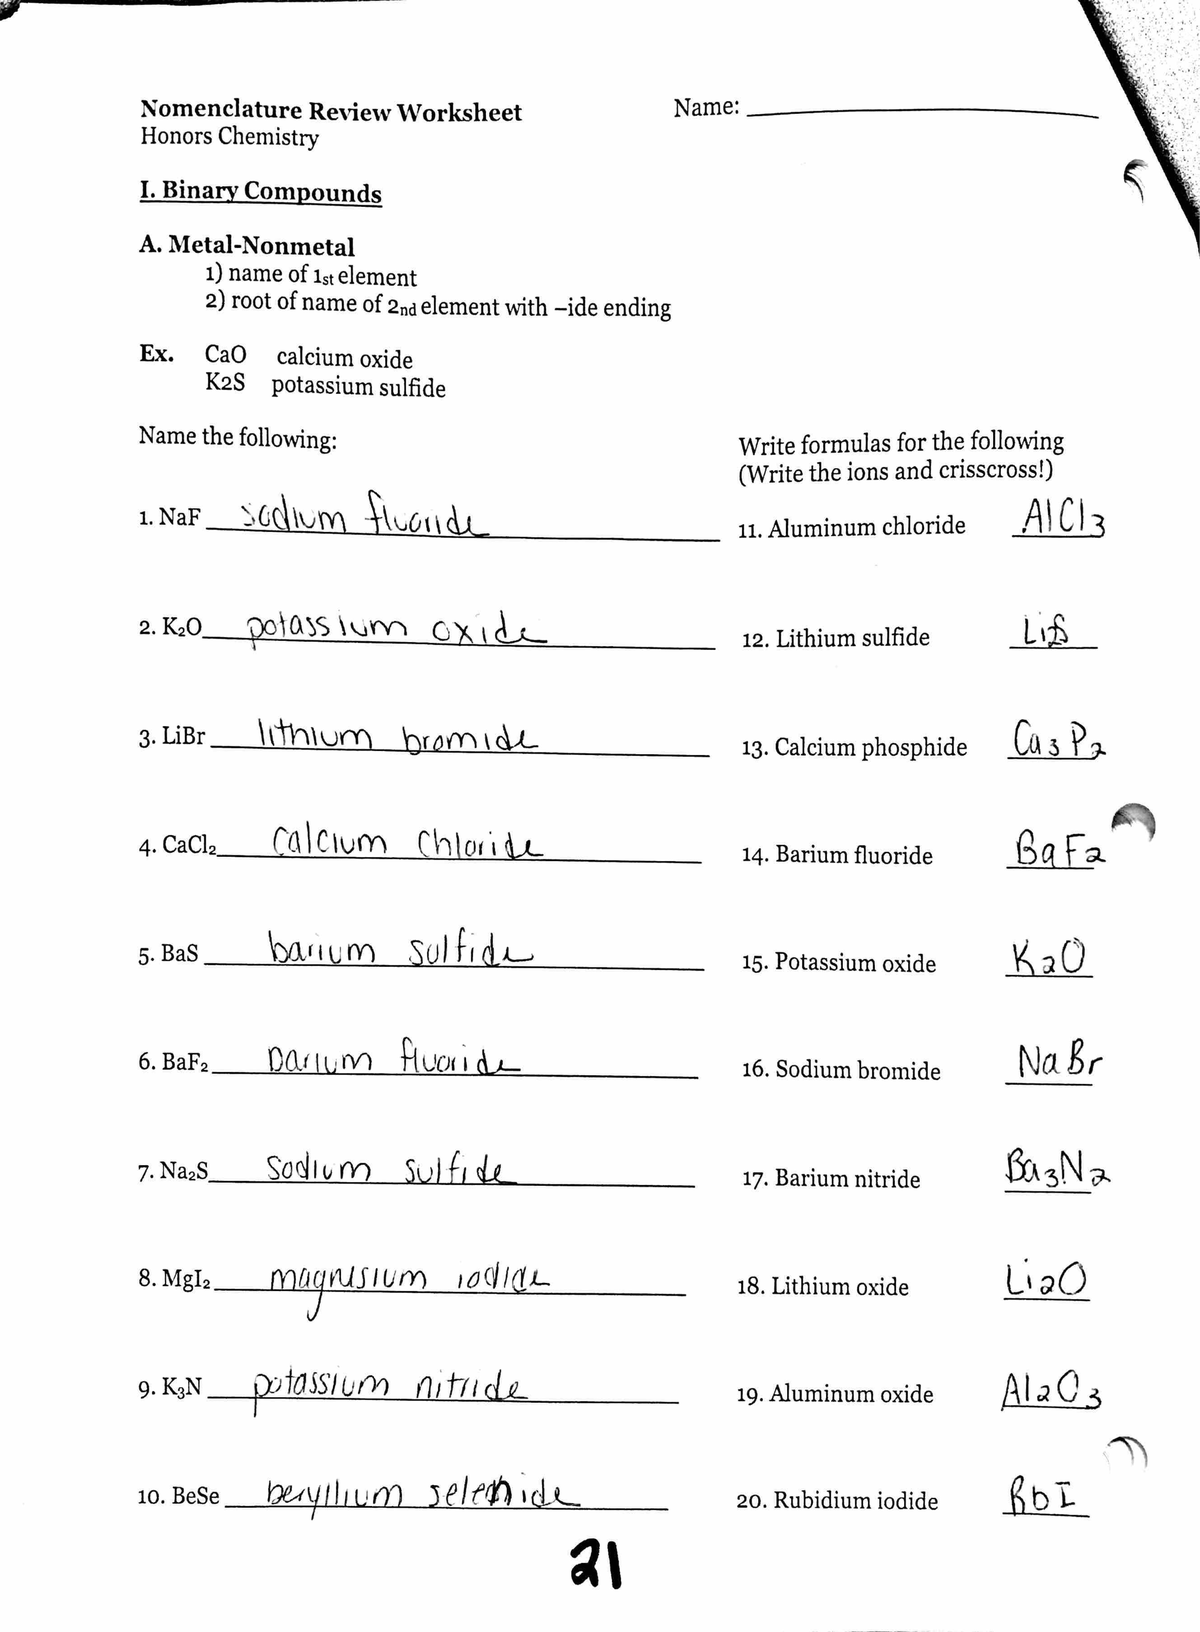 Nomenclature Review Worksheet Name:
Honors Chemistry
I. Binary Compounds
A. Metal-Nonmetal
1) name of 1st element
2) root of name of 2nd element with –ide ending
Ex. CaO calcium oxide
K2S potassium sulfide
Name the following:
Write formulas for the following
(Write the ions and crisscross!)
1. NaF sodium fluoride 11. Aluminum chloride AlCl3
2. K₂O potassium oxide 12. Lithium sulfide
3. LiBr lithium bromide 13. Calcium phosphide Ca3P2
4. CaCl₂ calcium chloride 14. Barium fluoride BaF2
5. BaS barium sulfide 15. Potassium oxide K2O
6. BaF₂ barium fluoride 16. Sodium bromide NaBr
7. Na₂S sodium sulfide 17. Barium nitride Ba3N2
8. MgI₂ magnesium iodide 18. Lithium oxide Li2O
9. K₃N potassium nitride 19. Aluminum oxide Al2O3
10. BeSe beryllium selenide 20. Rubidium iodide RbI
21